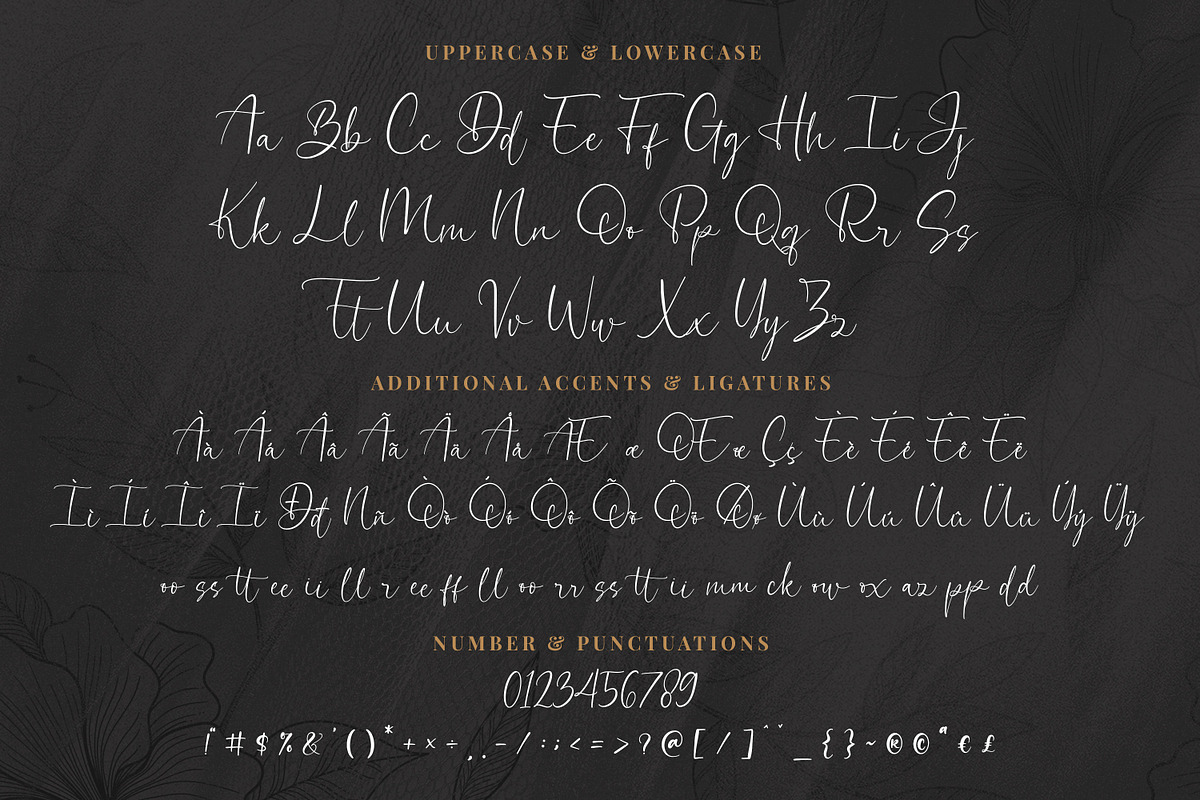 UPPERCASE & LOWERCASE
Aa Bb Cc Dd Ee Ff Gg Hh Ii Jj
Kk Ll Mm Nn Oo Pp Qq Rr Ss
Tt Uu Vv Ww Xx Yy Zz
ADDITIONAL ACCENTS & LIGATURES
Àà Áá Ââ Ãã Ää Åå Æ æ Œœ Çç Èè Éé Êê Ëë
Ìì Íí Îî Ïï Đđ Ññ Òò Óó Ôô Õõ Öö Øø Ùù Úú Ûû Üü Ýý Ÿÿ
oo ss tt ee ii ll r ee ff ll oo rr ss tt ii mm ck ow ox az pp dd
NUMBER & PUNCTUATIONS
0123456789
!" # $ % & ' ( ) * + × ÷ , . - / : ; < = > ? @ [ / ] ˆ ˇ _ { } ~ ® © ª € £